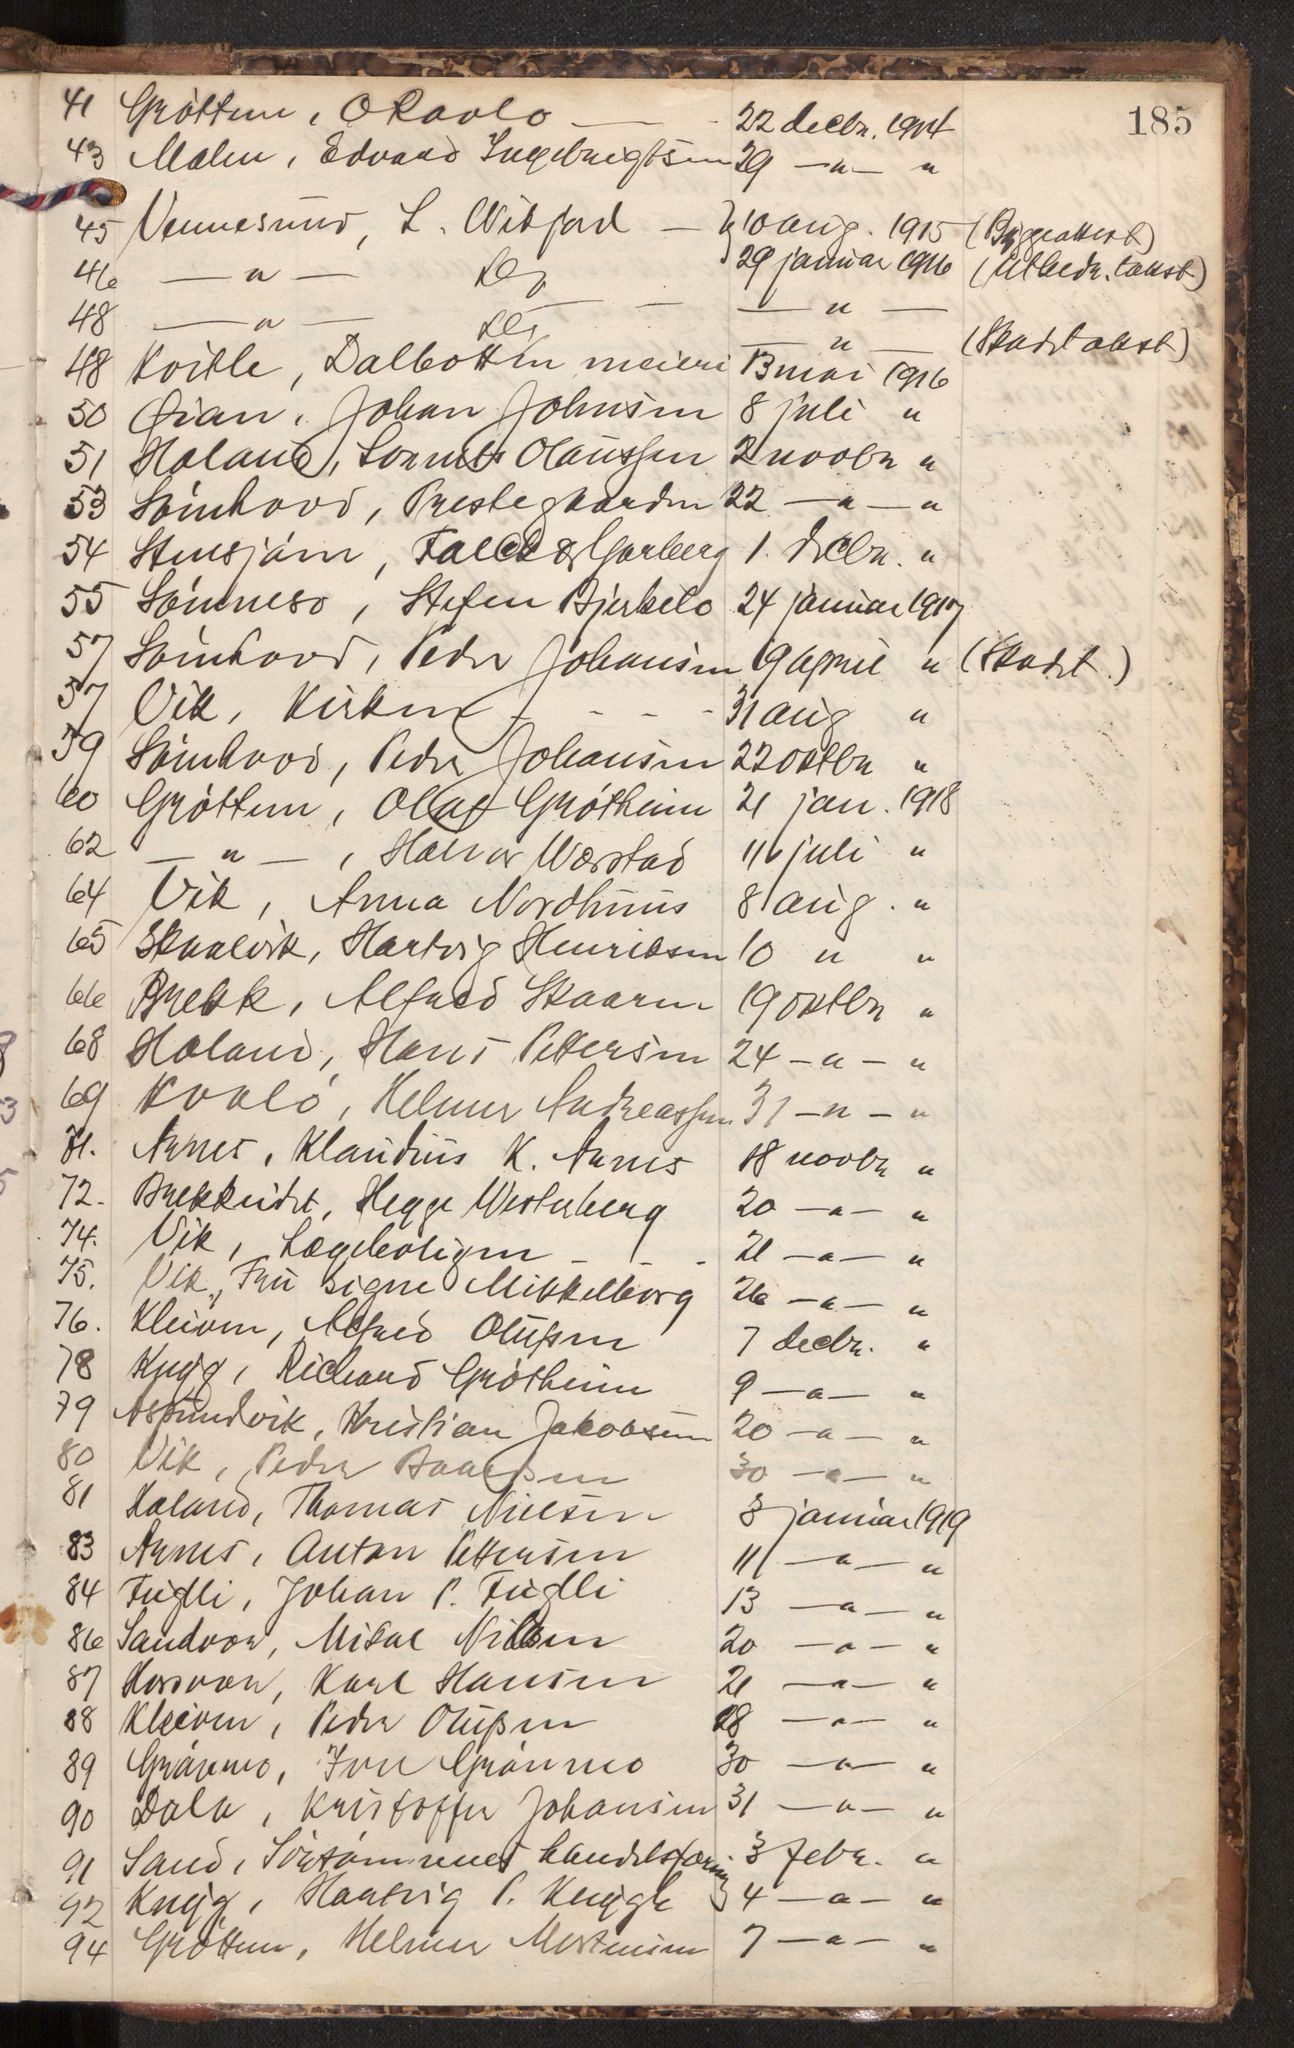 185
41 Gröttem, O Ravlo — 22 decbr. 1914
43 Malm, Edvard Ingebrigtsen 29 —„— „
45 Vennesund, L. Wibfard — 10 aug. 1915 (Byggeattest)
46 —„— Do 29 januar 1916 (Utbedr. takst)
48 —„— Do — — „ —
— „ — (Skadetakst)
48 Kvitle, Dalbotten meieri 13 mai 1916
50 Öian, Johan Johnsen 8 juli „
51 Holand, Olaussen 2 novbr „
53 Sömhovd, Prestegaarden 22 —„— „
54 Stensjöen, Falck & Garberg 1. decbr. „
55 Sömnesö, Stefen Bjerkelo 24 januar 1917
57 Sömhovd, Peder Johansen 19 april „ (Skadet.)
57 Vik, Kirken - - - - 31 aug „
59 Sömhovd, Peder Johansen 22 oktbr „
60 Gröttem, Olaf Grötheim 21 jan. 1918
62 —„—, Halvor Wærstad 16 juli „
64 Vik, Anna Nordhuus 8 aug. „
65 Skaalvik, Hartvig Henriksen 10 „ „
66 Brekk, Alfred Skaaren 19 oktbr „
68 Holand, Hans Pettersen 24 —„— „
69 Kvalö, Helmer Andreassen 31 —„— „
71. Arnes, Klaudius K. Arnes 18 novbr „
72. Brekkeidet, Hegge Westerberg 20 —„— „
74. Vik, Lægeboligen - - - 21 —„— „
75. Vik, Fru Signe Mikkelborg 26 —„— „
76. Kleiven, Alfred Olufsen 7 decbr. „
78 Knygg, Richard Grötheim 9 —„— „
79 Aspundvik, Kristian Jakobsen 20 —„— „
80 Vik, Peder 30 —„— „
81 Holand, Thomas Nielsen 3 januar 1919
83 Arnes, Anton Pettersen 11 —„— „
84 Fuglli, Johan P. Fuglli 13 —„— „
86 Sandvær, Mikal Nilsen 20 —„— „
87 Horsvær, Karl Hansen 21 —„— „
88 Kleiven, Peder Olufsen 28 —„— „
89 Grönmo, Iver Grönmo 30 —„— „
90 Dala, Kristoffer Johansen 31 —„— „
91 Sand, Sörsömnes handelsforening 3 febr. „
92 Knygg, Hartvig P. Knygge 4 —„— „
94 Gröttem, Helmer Mortensen 7 —„— „